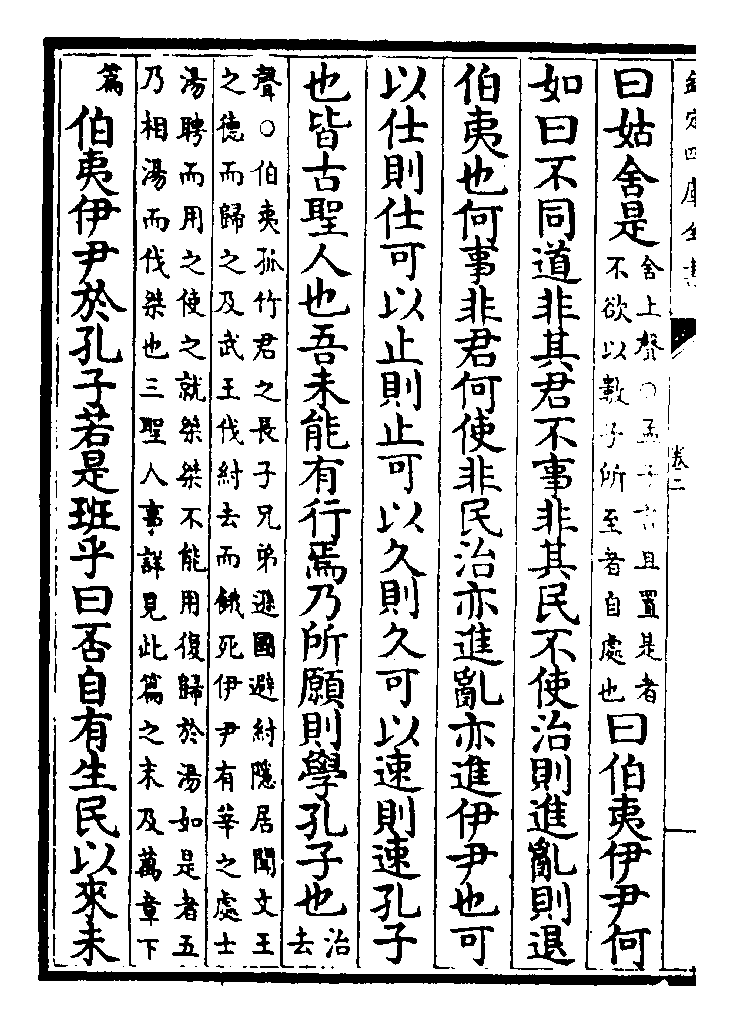 欽定四庫全書
卷二
曰姑舍是舍上聲○孟子言且置是者不欲以數子所至者自處也曰伯夷伊尹何
如曰不同道非其君不事非其民不使治則進亂則退
伯夷也何事非君何使非民治亦進亂亦進伊尹也可
以仕則仕可以止則止可以久則久可以速則速孔子
也皆古聖人也吾未能有行焉乃所願則學孔子也治去
聲○伯夷孤竹君之長子兄弟遜國避紂隱居聞文王
之德而歸之及武王伐紂去而餓死伊尹有莘之處士
湯聘而用之使之就桀桀不能用復歸於湯如是者五
乃相湯而伐桀也三聖人事詳見此篇之末及萬章下
篇伯夷伊尹於孔子若是班乎曰否自有生民以來未